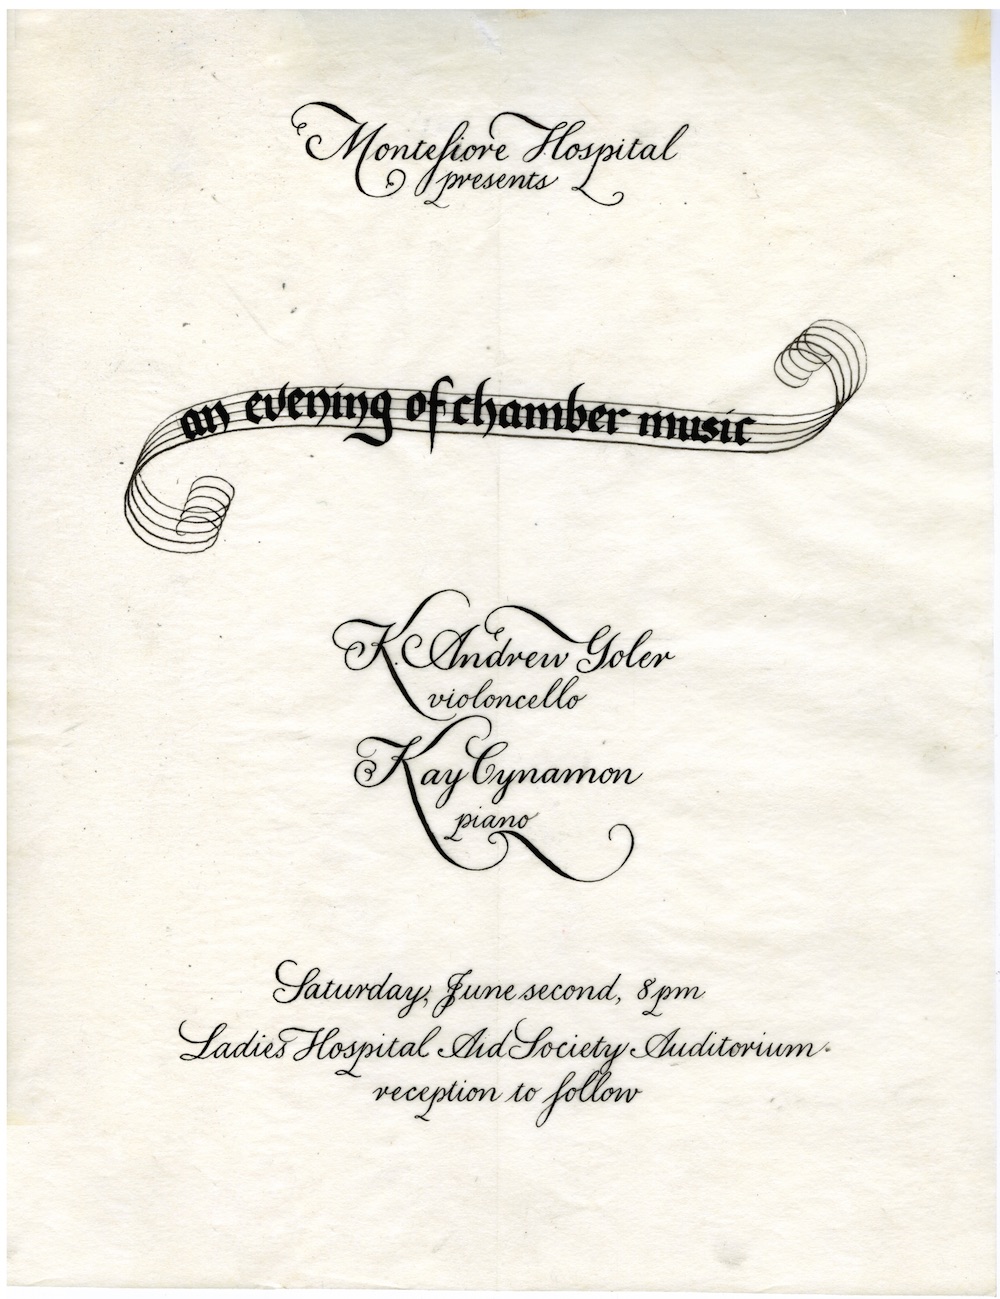 Montefiore Hospital
presents
an evening of chamber music
K. Andrew Goler
violoncello
Kay Cynamon
piano
Saturday, June second, 8pm
Ladies Hospital Aid Society Auditorium.
reception to follow